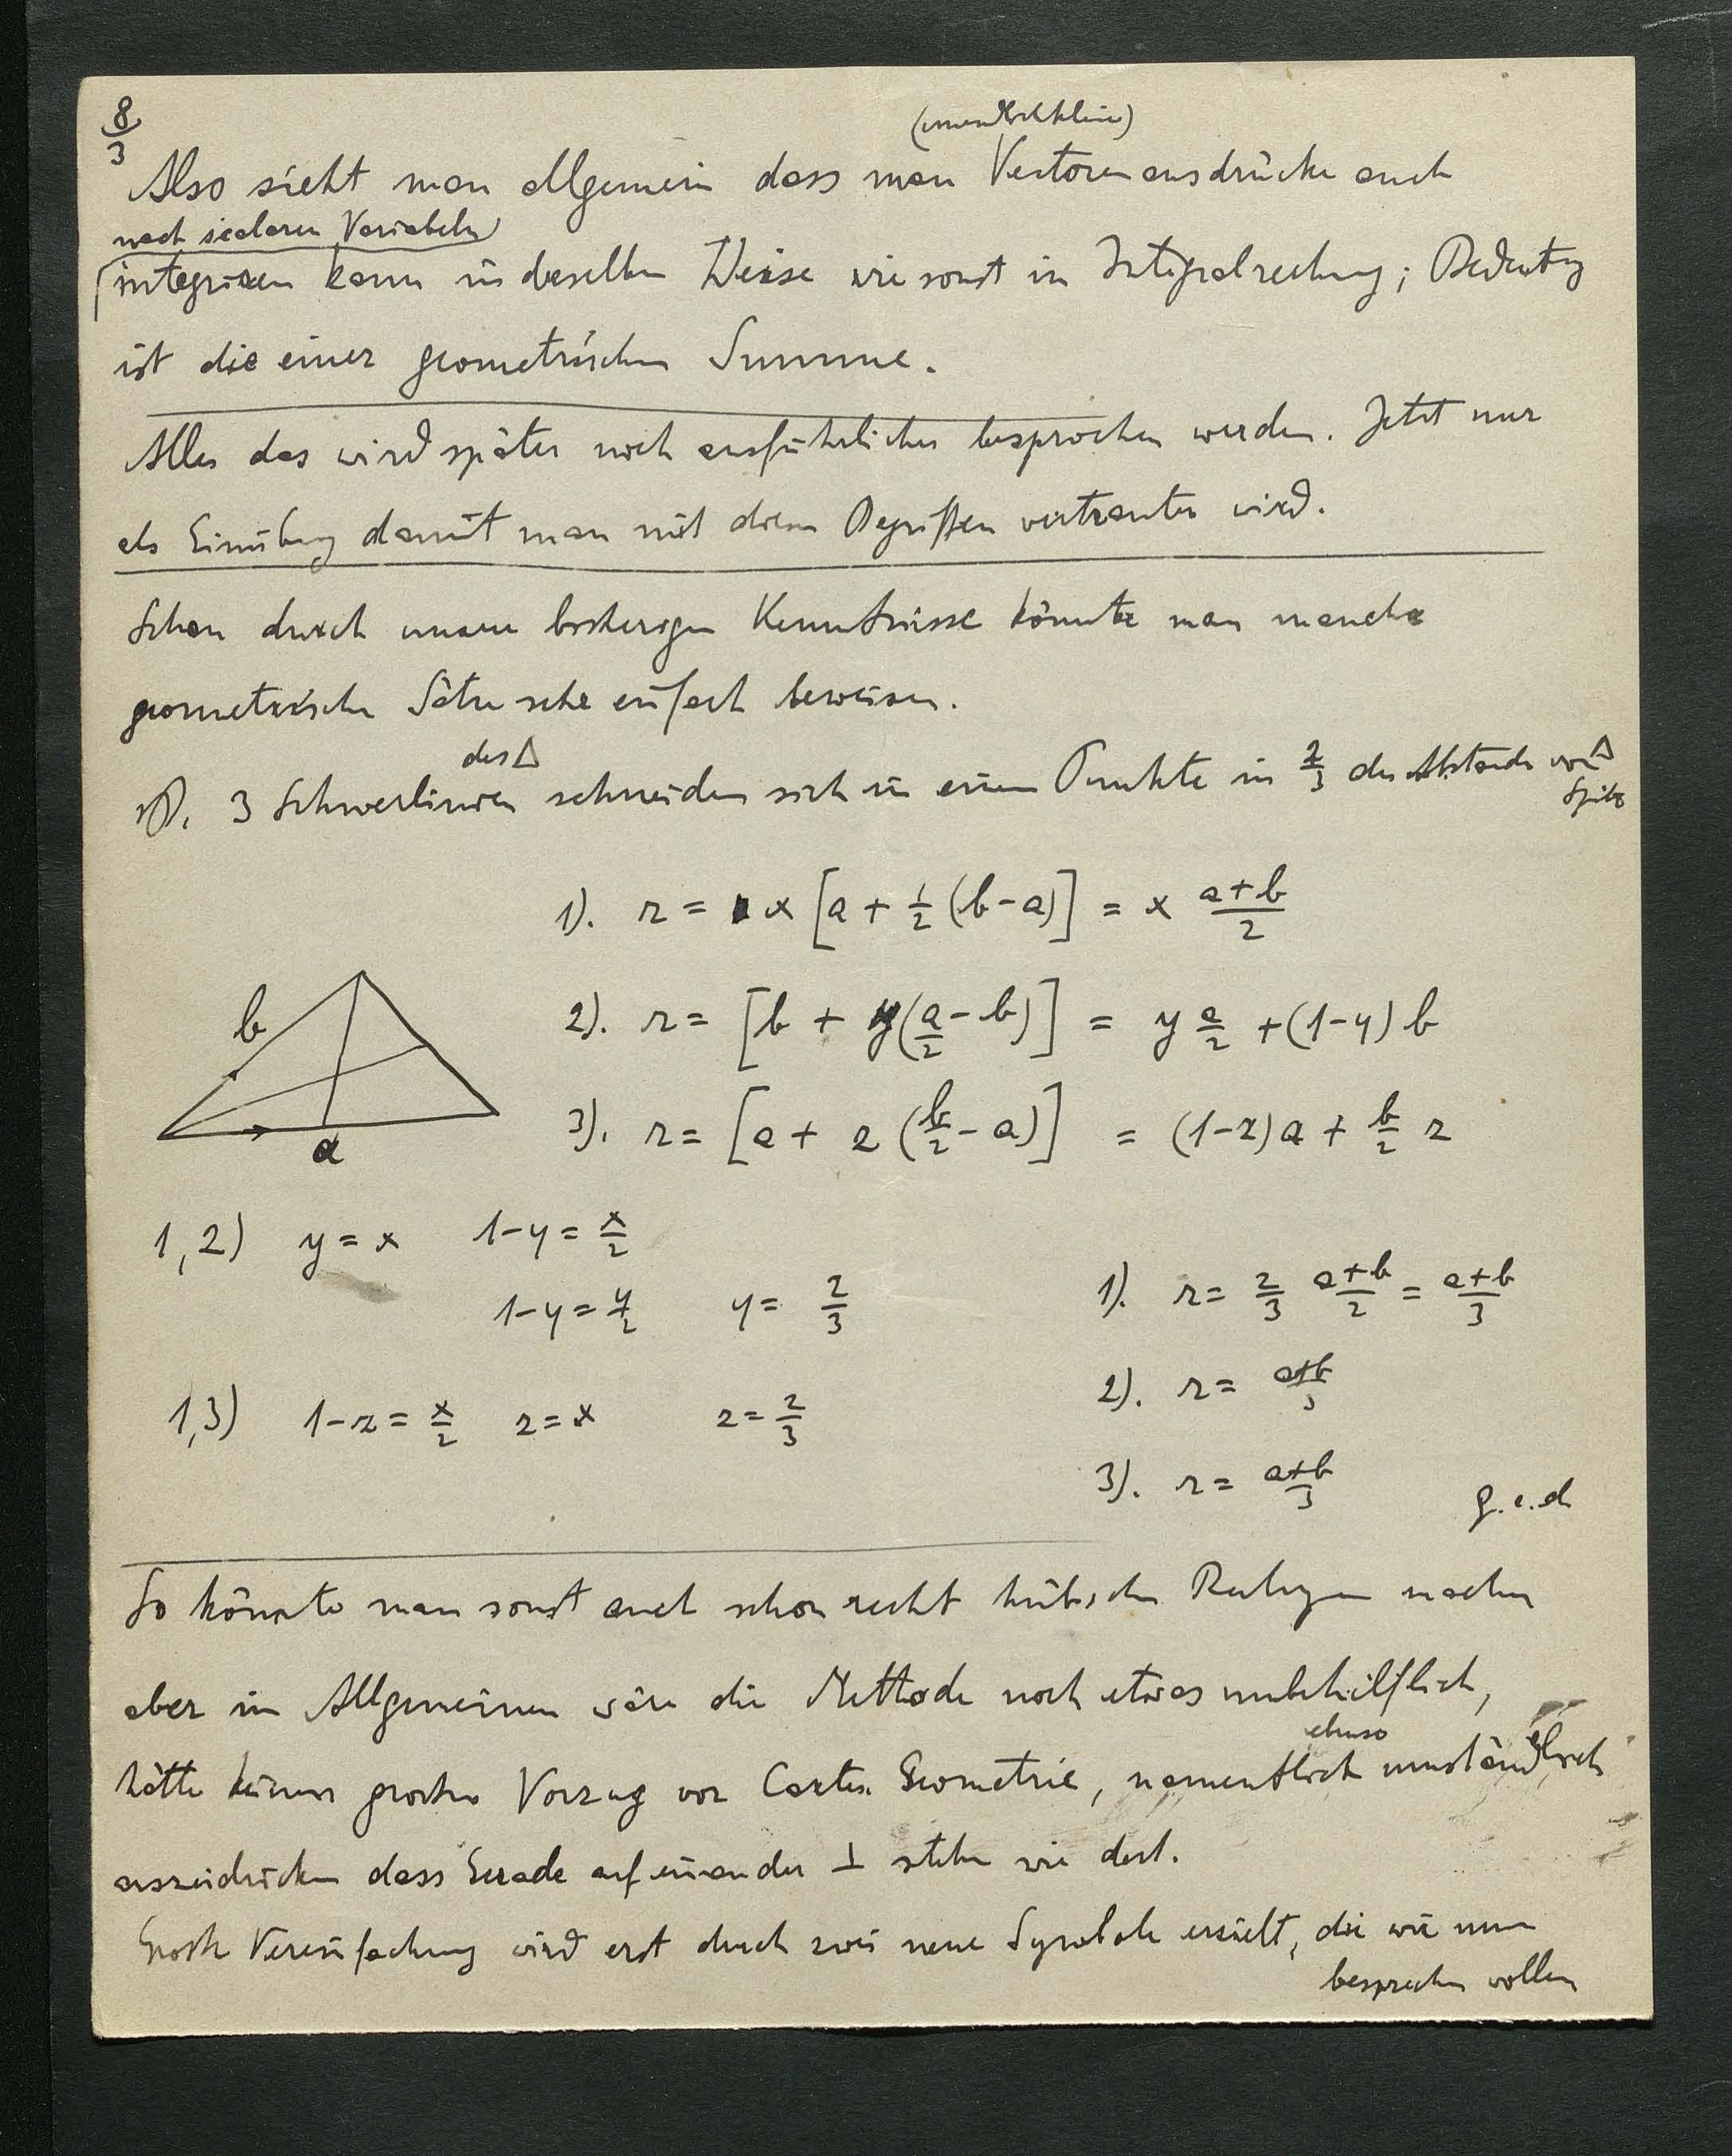 8/3
(unendlich kleine)
Also sieht man allgemein dass man Vectorenausdrücke auch
nach scalaren Variabeln
integrieren kann in derselben Weise wie sonst in Integralrechnung; Bedeutung
ist die einer geometrischen Summe.
Alles das wird später noch ausführlicher besprochen werden. Jetzt nur
als Einübung damit man mit diesen Begriffen vertrauter wird.
Schon durch unsere bisherigen Kenntnisse könnte man manche
geometrische Sätze sehr einfach beweisen.
des Δ
zB. 3 Schwerlinien schneiden sich in einem Punkte in 2/3 des Abstands von Δ
Spitze
1). r = x [a + 1/2 (b - a)] = x (a+b)/2
b
2). r = [b + y(a/2 - b)] = y a/2 + (1-y) b
3). r = [a + z (b/2 - a)] = (1-z) a + b/2 z
a
1,2) y = x 1-y = x/2
1-y = y/2 y = 2/3
1). r = 2/3 (a+b)/2 = (a+b)/3
2). r = (a+b)/3
1,3) 1-z = x/2 z = x z = 2/3
3). r = (a+b)/3
q.e.d
So könnte man sonst auch schon recht hübsche Rechnungen machen
aber im Allgemeinen wäre die Methode noch etwas unbehilflich,
ebenso
hätte keinen grossen Vorzug vor Cartes. Geometrie, namentlich umständlich
auszudrücken dass Gerade auf einander ⊥ stehen wie dort.
Grosse Vereinfachung wird erst durch zwei neue Symbole erzielt, die wir nun
besprechen wollen